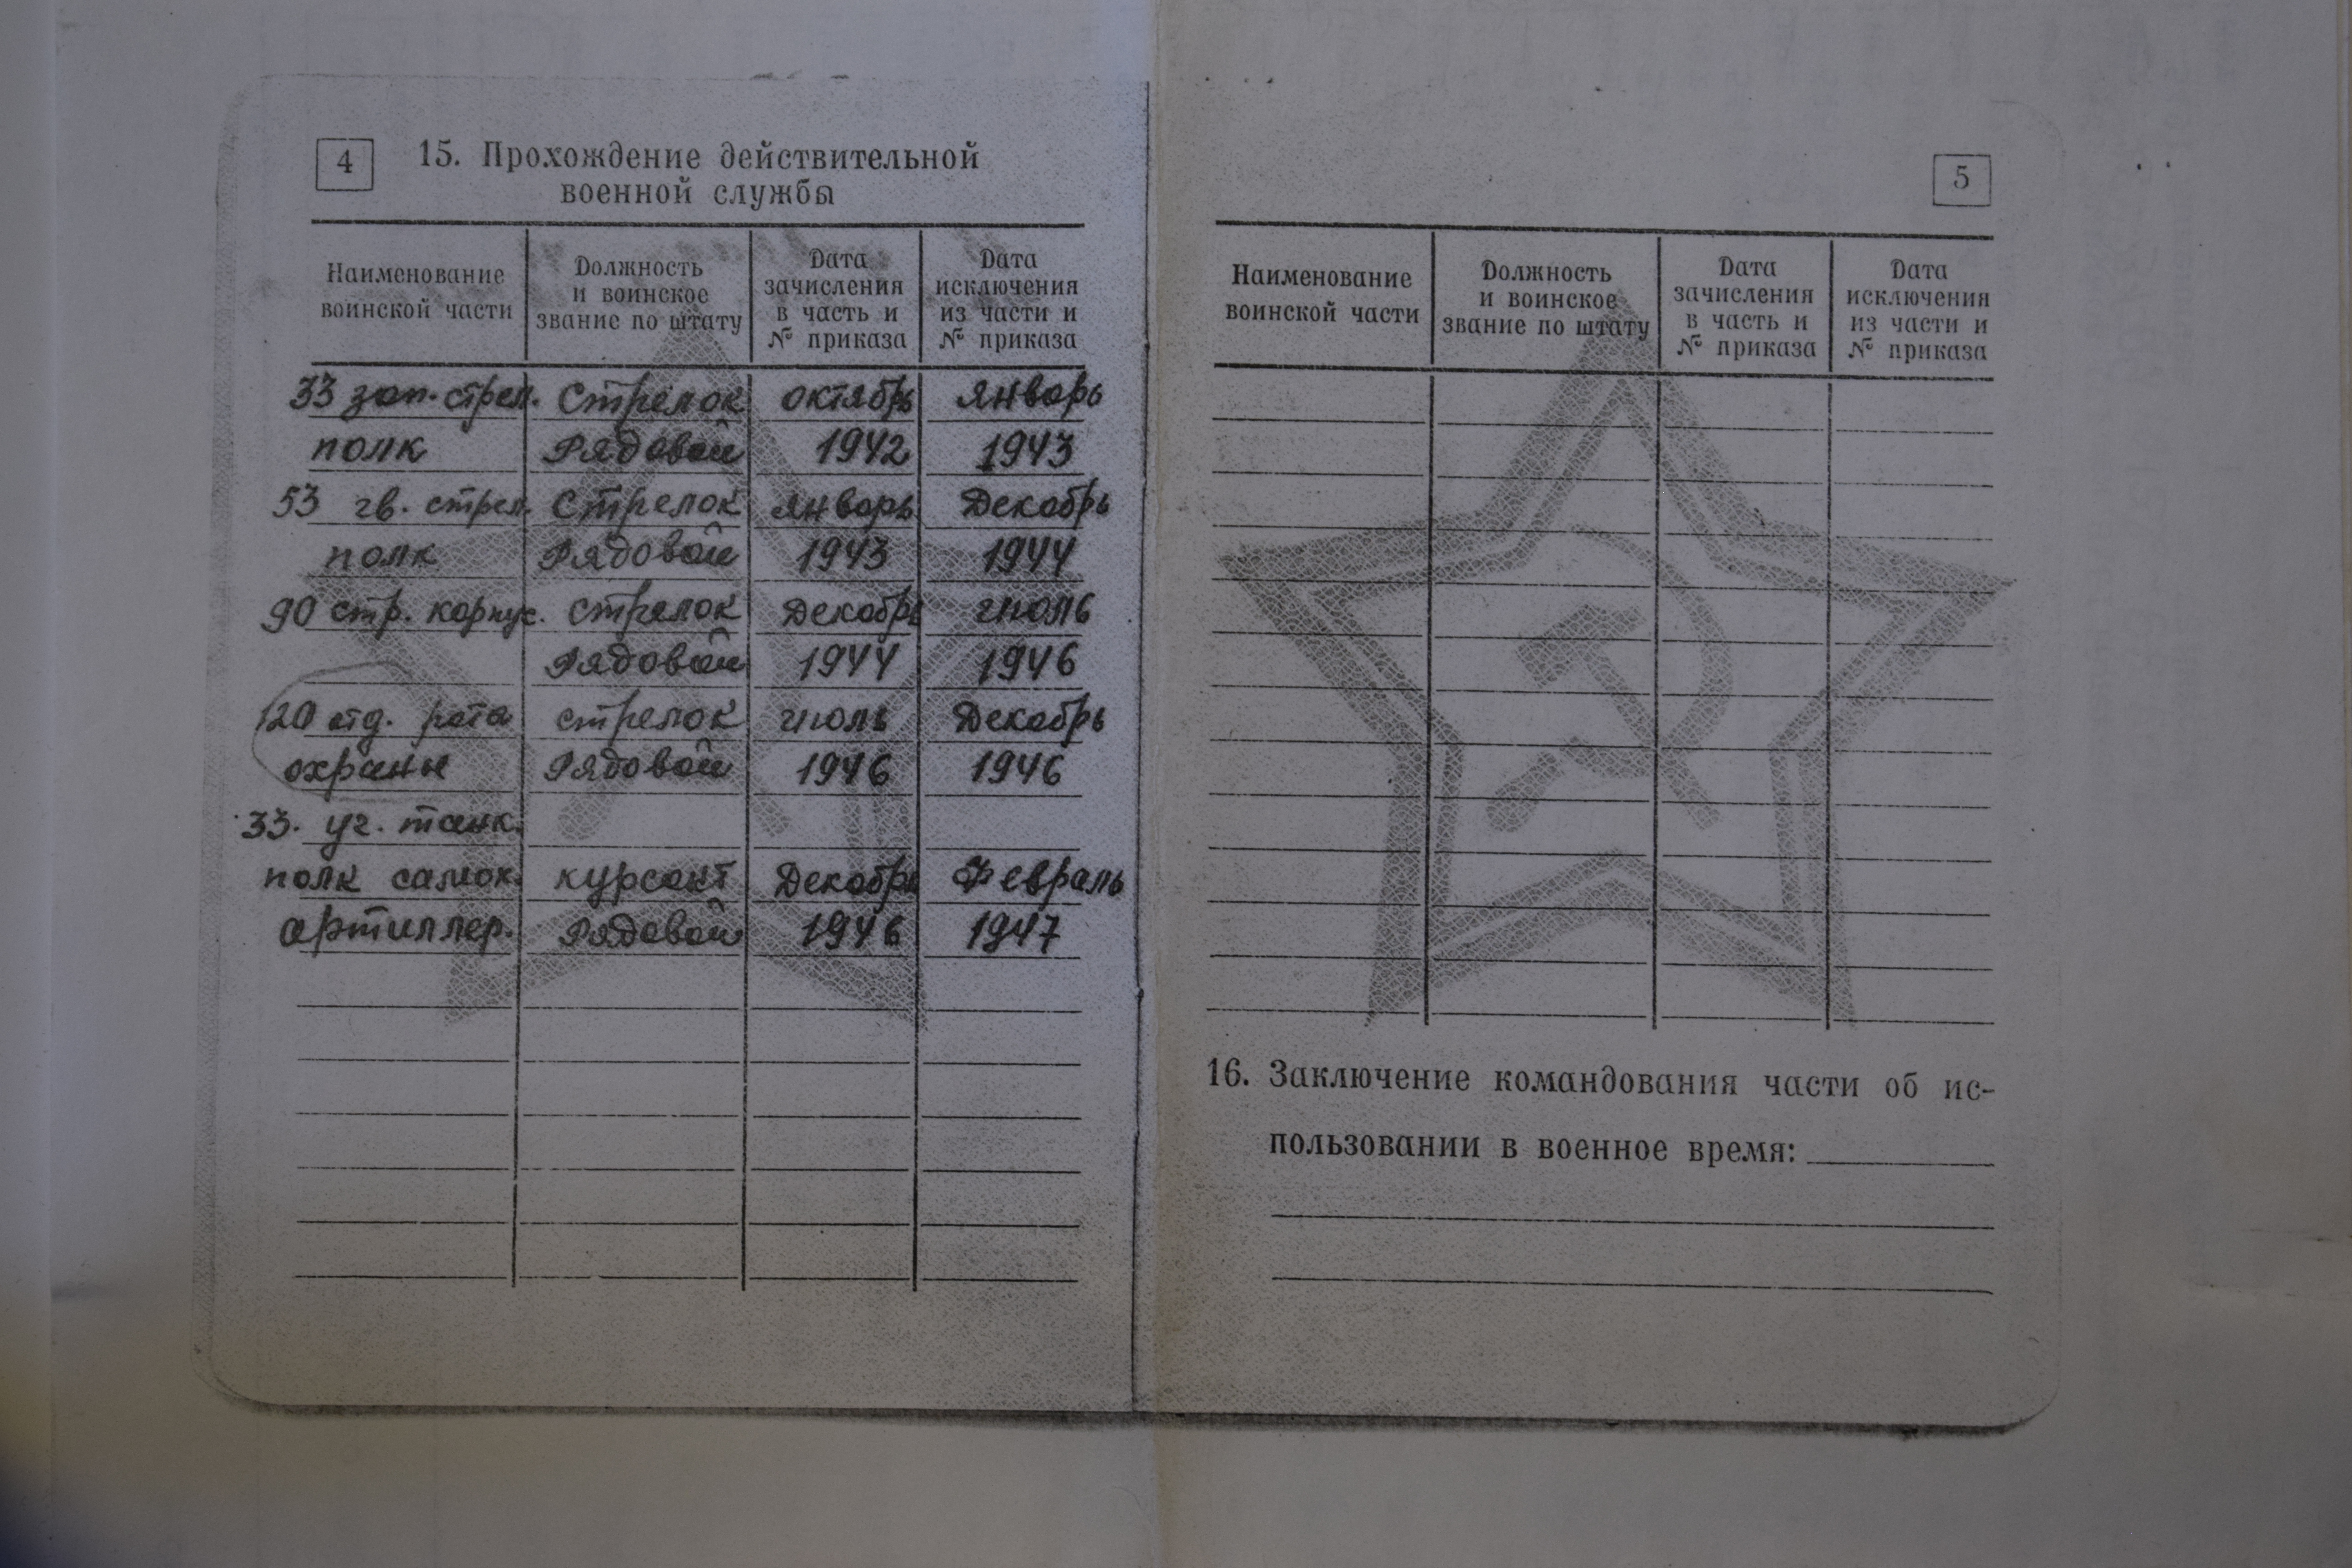 4
15. Прохождение действительной
военной службы
Наименование
воинской части
Должность
и воинское
звание по штату
Дата
зачисления
в часть и
№ приказа
Дата
исключения
из части и
№ приказа
33 зап. стрел. Стрелок октябрь январь
полк Рядовой 1942 1943
53 гв. стрел. Стрелок январь Декабрь
полк Рядовой 1943 1944
90 стр. корпус. стрелок Декабрь июль
Рядовой 1944 1946
120 отд. рота стрелок июль Декабрь
охраны Рядовой 1946 1946
33. уч. танк.
полк самох. курсант Декабрь Февраль
артиллер. Рядовой 1946 1947
5
Наименование
воинской части
Должность
и воинское
звание по штату
Дата
зачисления
в часть и
№ приказа
Дата
исключения
из части и
№ приказа
16. Заключение командования части об ис-
пользовании в военное время: